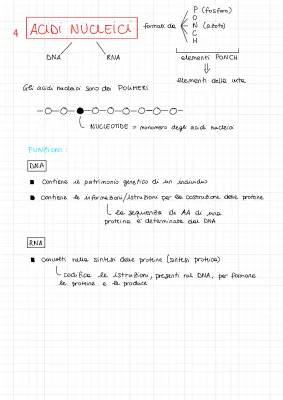 4 ACIDI NUCLEICI
formati da
P (fosforo)
O
N (azoto)
C
H
DNA RNA
elementi PONCH
elementi della vita
Gli acidi nucleici sono dei POLIMERI
NUCLEOTIDE = monomero degli acidi nucleici
FUNZIONI:
DNA
Contiene il patrimonio genetico di un individuo
Contiene le informazioni/istruzioni per la costruzione delle proteine
la sequenza di AA di una
proteina è determinata dal DNA
RNA
Coinvolti nella sintesi delle proteine (sintesi proteica)
codifica le istruzioni, presenti nel DNA, per formare
le proteine e le produce